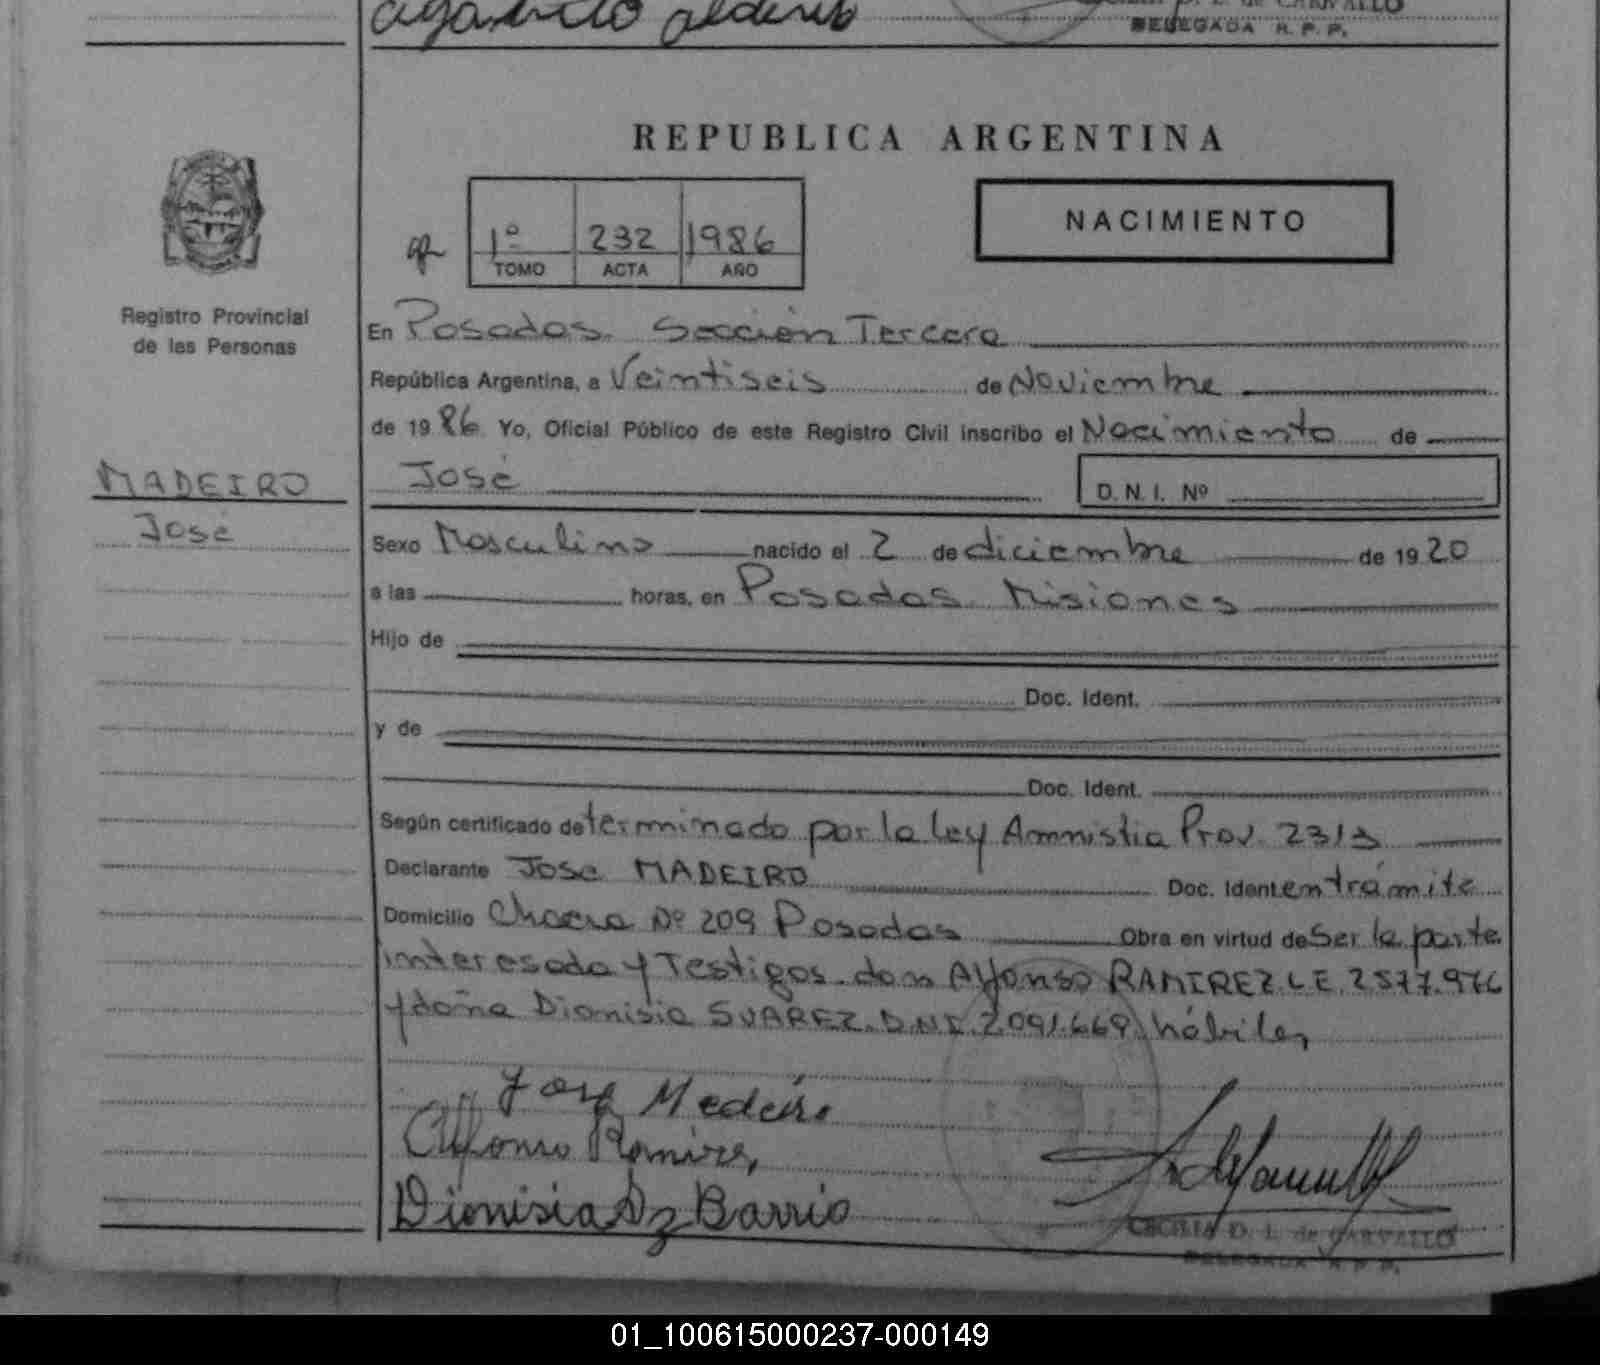 DELEGADA R. P. P.
REPUBLICA ARGENTINA
NACIMIENTO
1º 232 1986
TOMO ACTA AÑO
Registro Provincial
de las Personas
En Posadas Sección Tercera
República Argentina, a Veintiseis de Noviembre
de 1986 Yo, Oficial Público de este Registro Civil inscribo el Nacimiento de
José D. N. I. Nº
MADEIRO
José
Sexo Masculino nacido el 2 de diciembre de 1920
a las horas, en Posadas Misiones
Hijo de
Doc. Ident.
y de
Doc. Ident.
Según certificado determinado por la Ley Amnistia Prov. 2313
Declarante Jose MADEIRO Doc. Ident. en trámite
Domicilio Chacra Nº 209 Posadas Obra en virtud de Ser la parte
interesada y Testigos don Alfonso RAMIREZ L E 2577.976
y doña Dionisia SUAREZ D.N.I. 2.091.669 hábiles
Jose Medeiro
Alfonso Ramires
Dionisia Sz Barrio
CECILIA D. L. de CARVALLO
DELEGADA R. P. P.
01_100615000237-000149